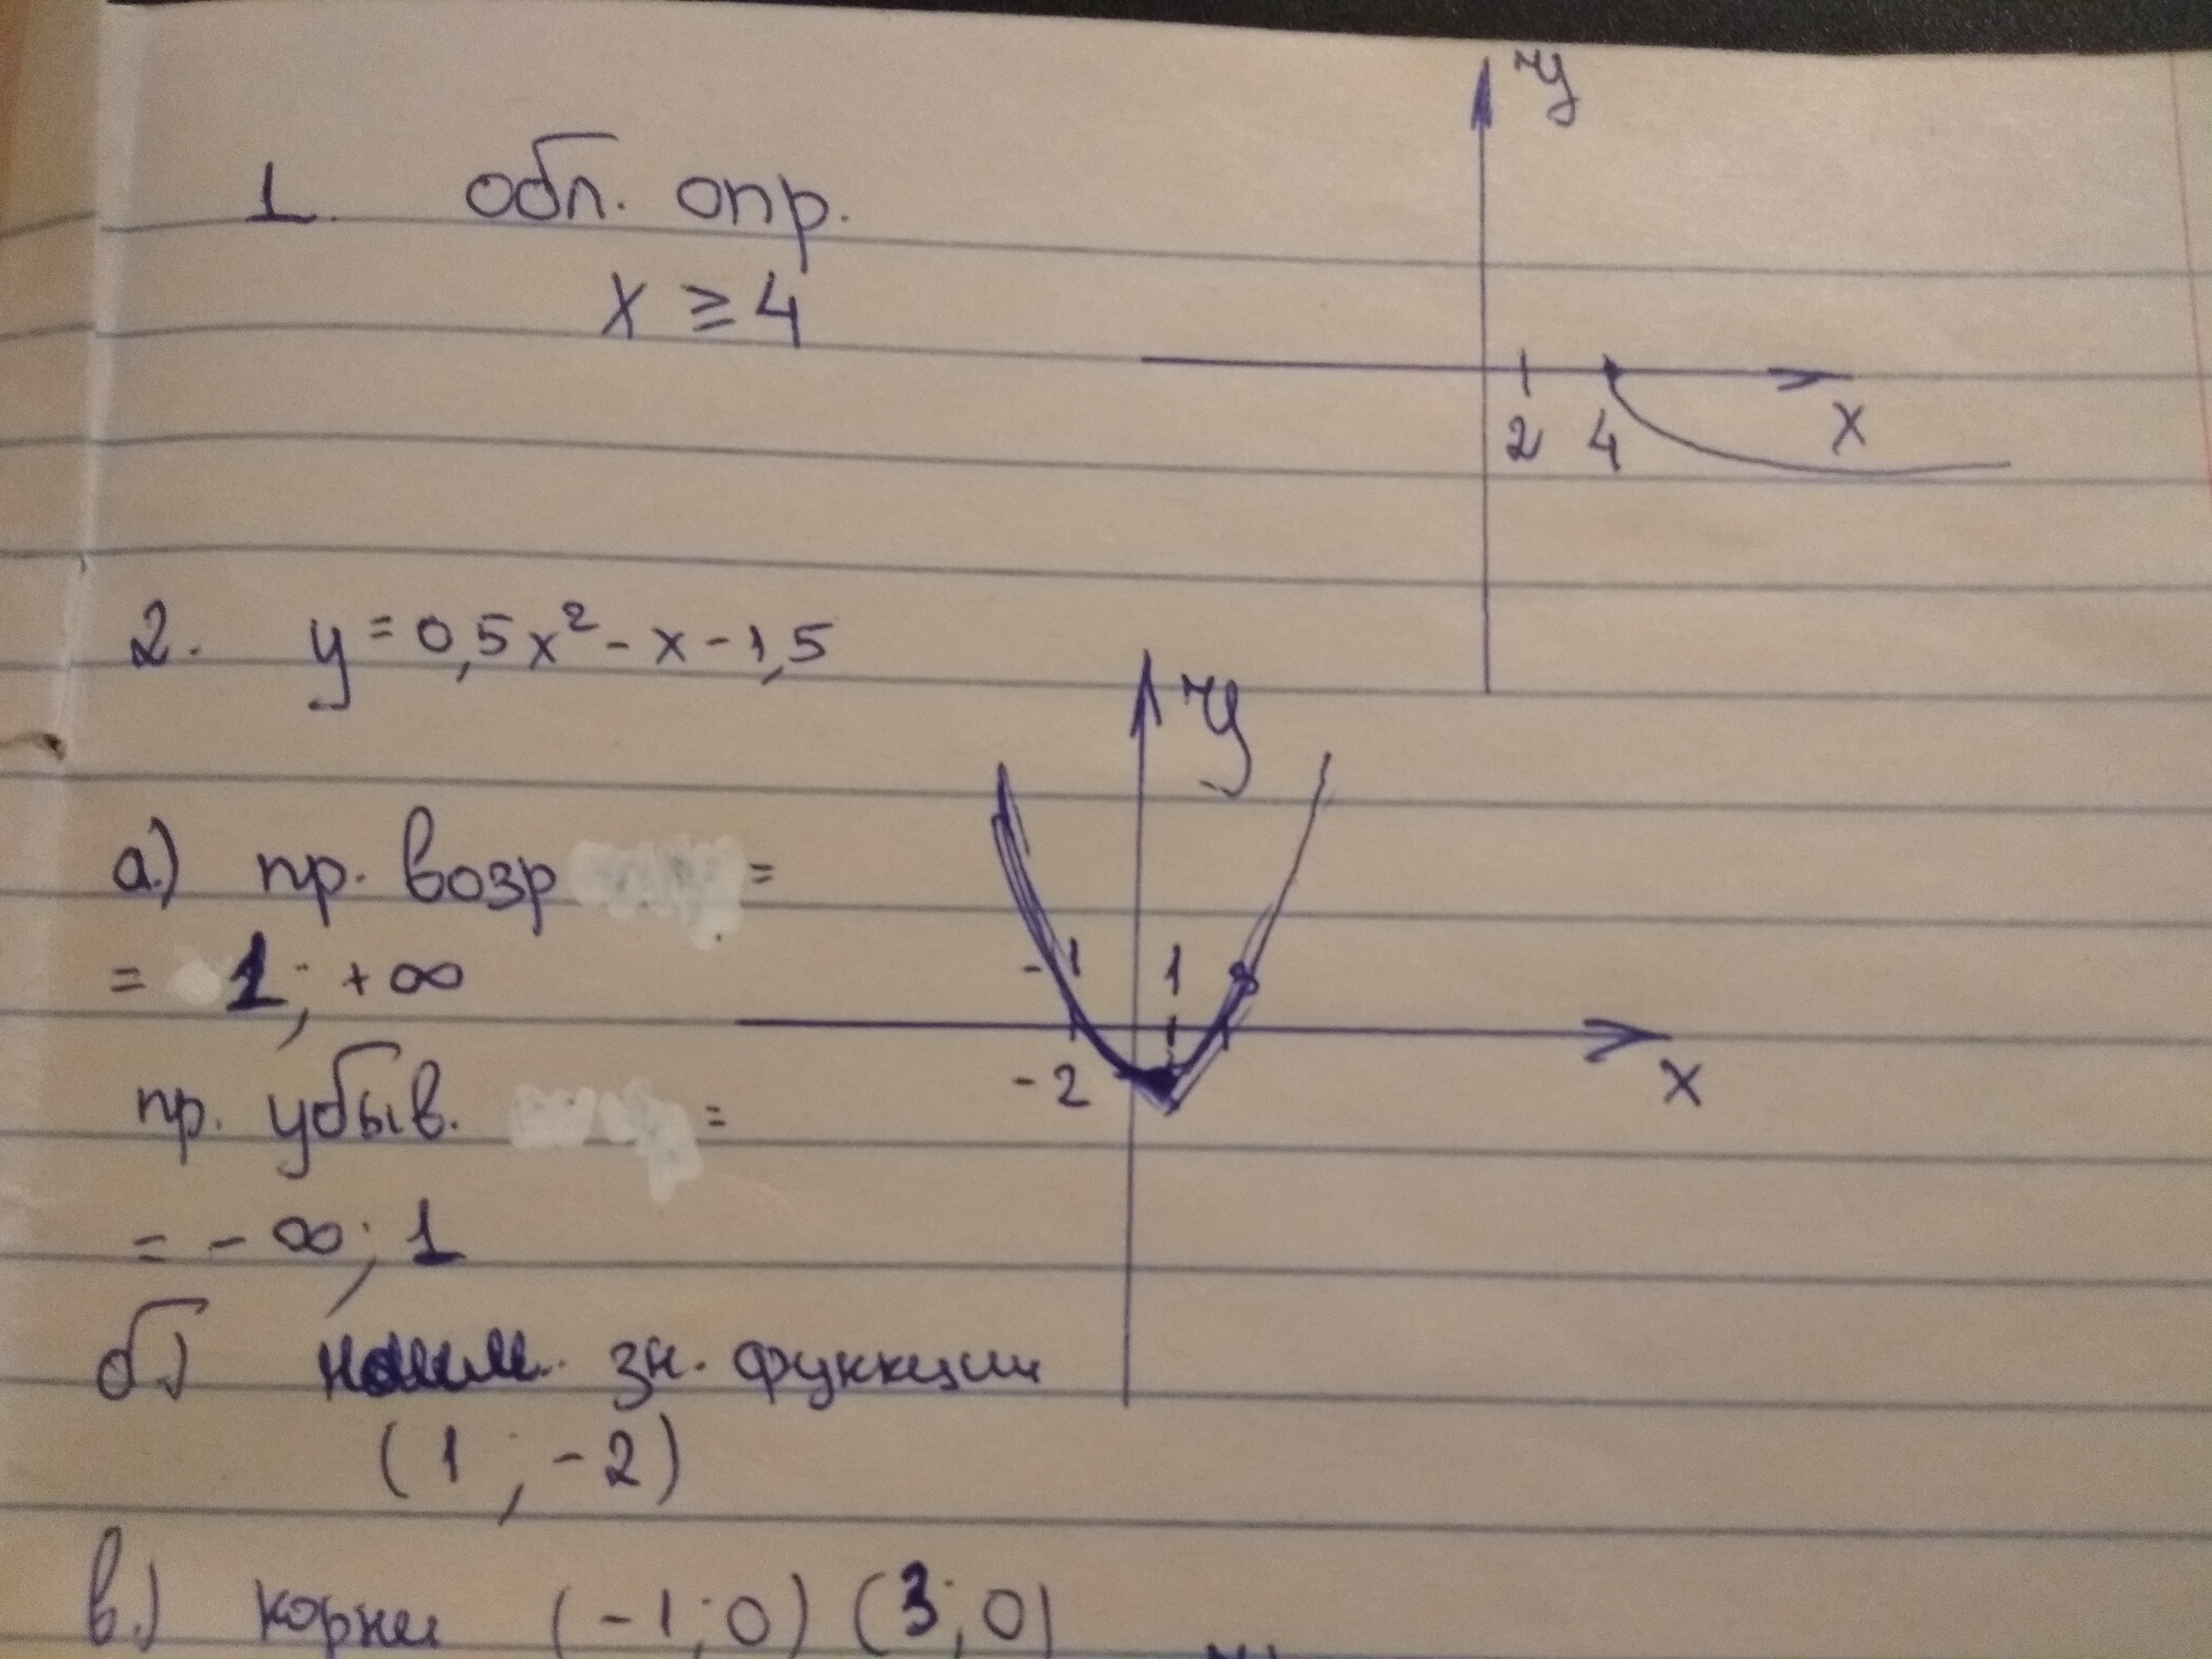 1. обл. опр.
x ≥ 4
y
2 4 x
2. y = 0,5x² - x - 1,5
y
а) пр. возр =
= 1; +∞
-1 1
x
-2
пр. убыв. =
= -∞; 1
б) наим. зн. функции
(1; -2)
в) корни (-1; 0) (3; 0)